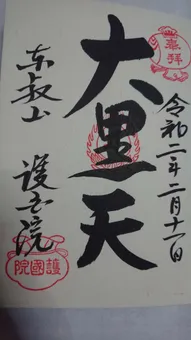 奉拝
令和二年二月十一日
大黒天
東叡山
護国院
護國院